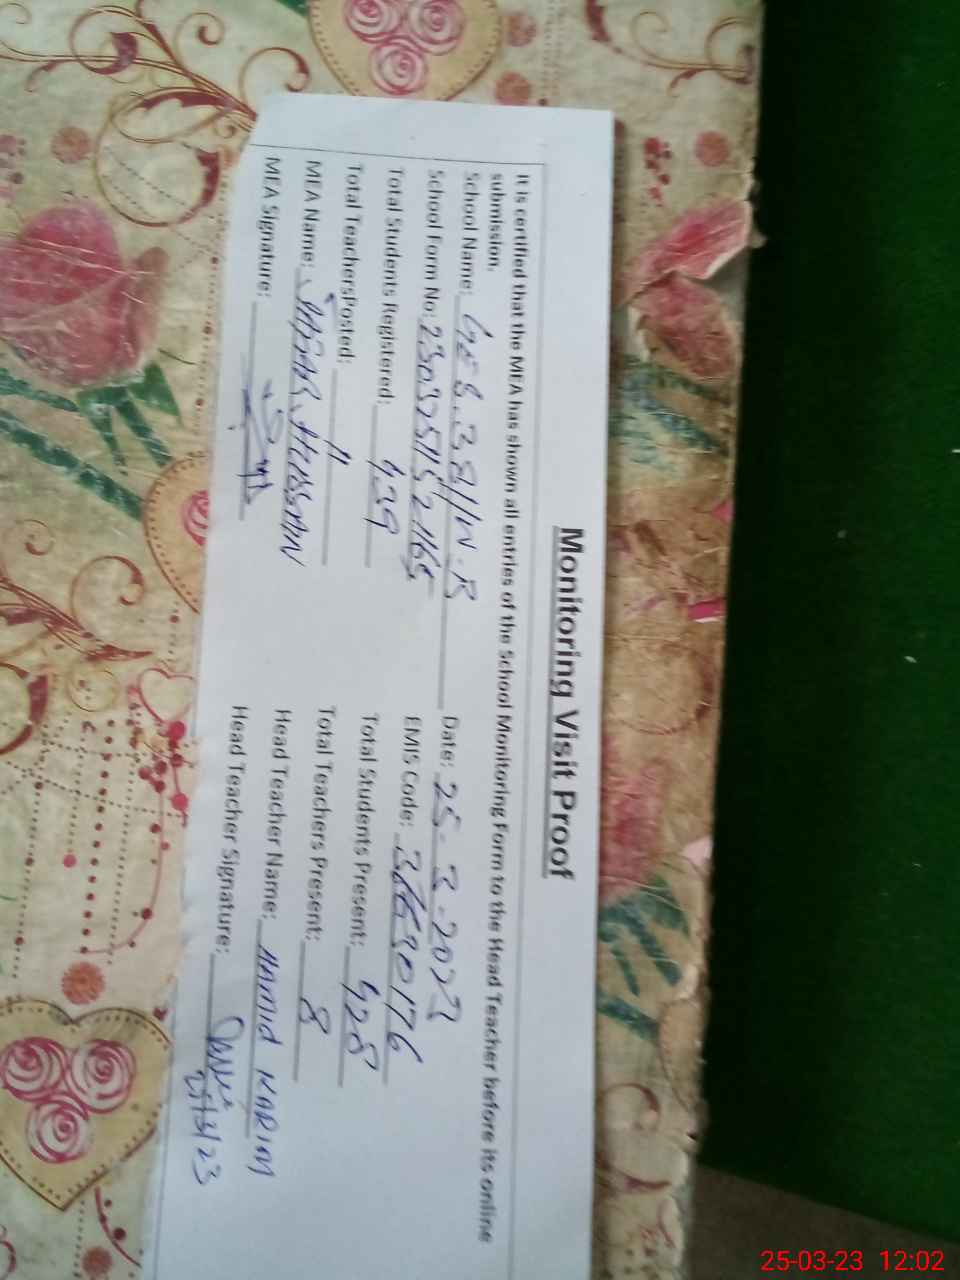 Monitoring Visit Proof
It is certified that the MEA has shown all entries of the School Monitoring Form to the Head Teacher before its online
submission.
School Name: Date: 25-3-2023
School Form No: EMIS Code:
Total Students Registered: 439 Total Students Present: 428
Total TeachersPosted: 11 Total Teachers Present: 8
MEA Name: HUSSAIN Head Teacher Name: HAMID KARIM
MEA Signature: Head Teacher Signature:
25/3/23
25-03-23 12:02